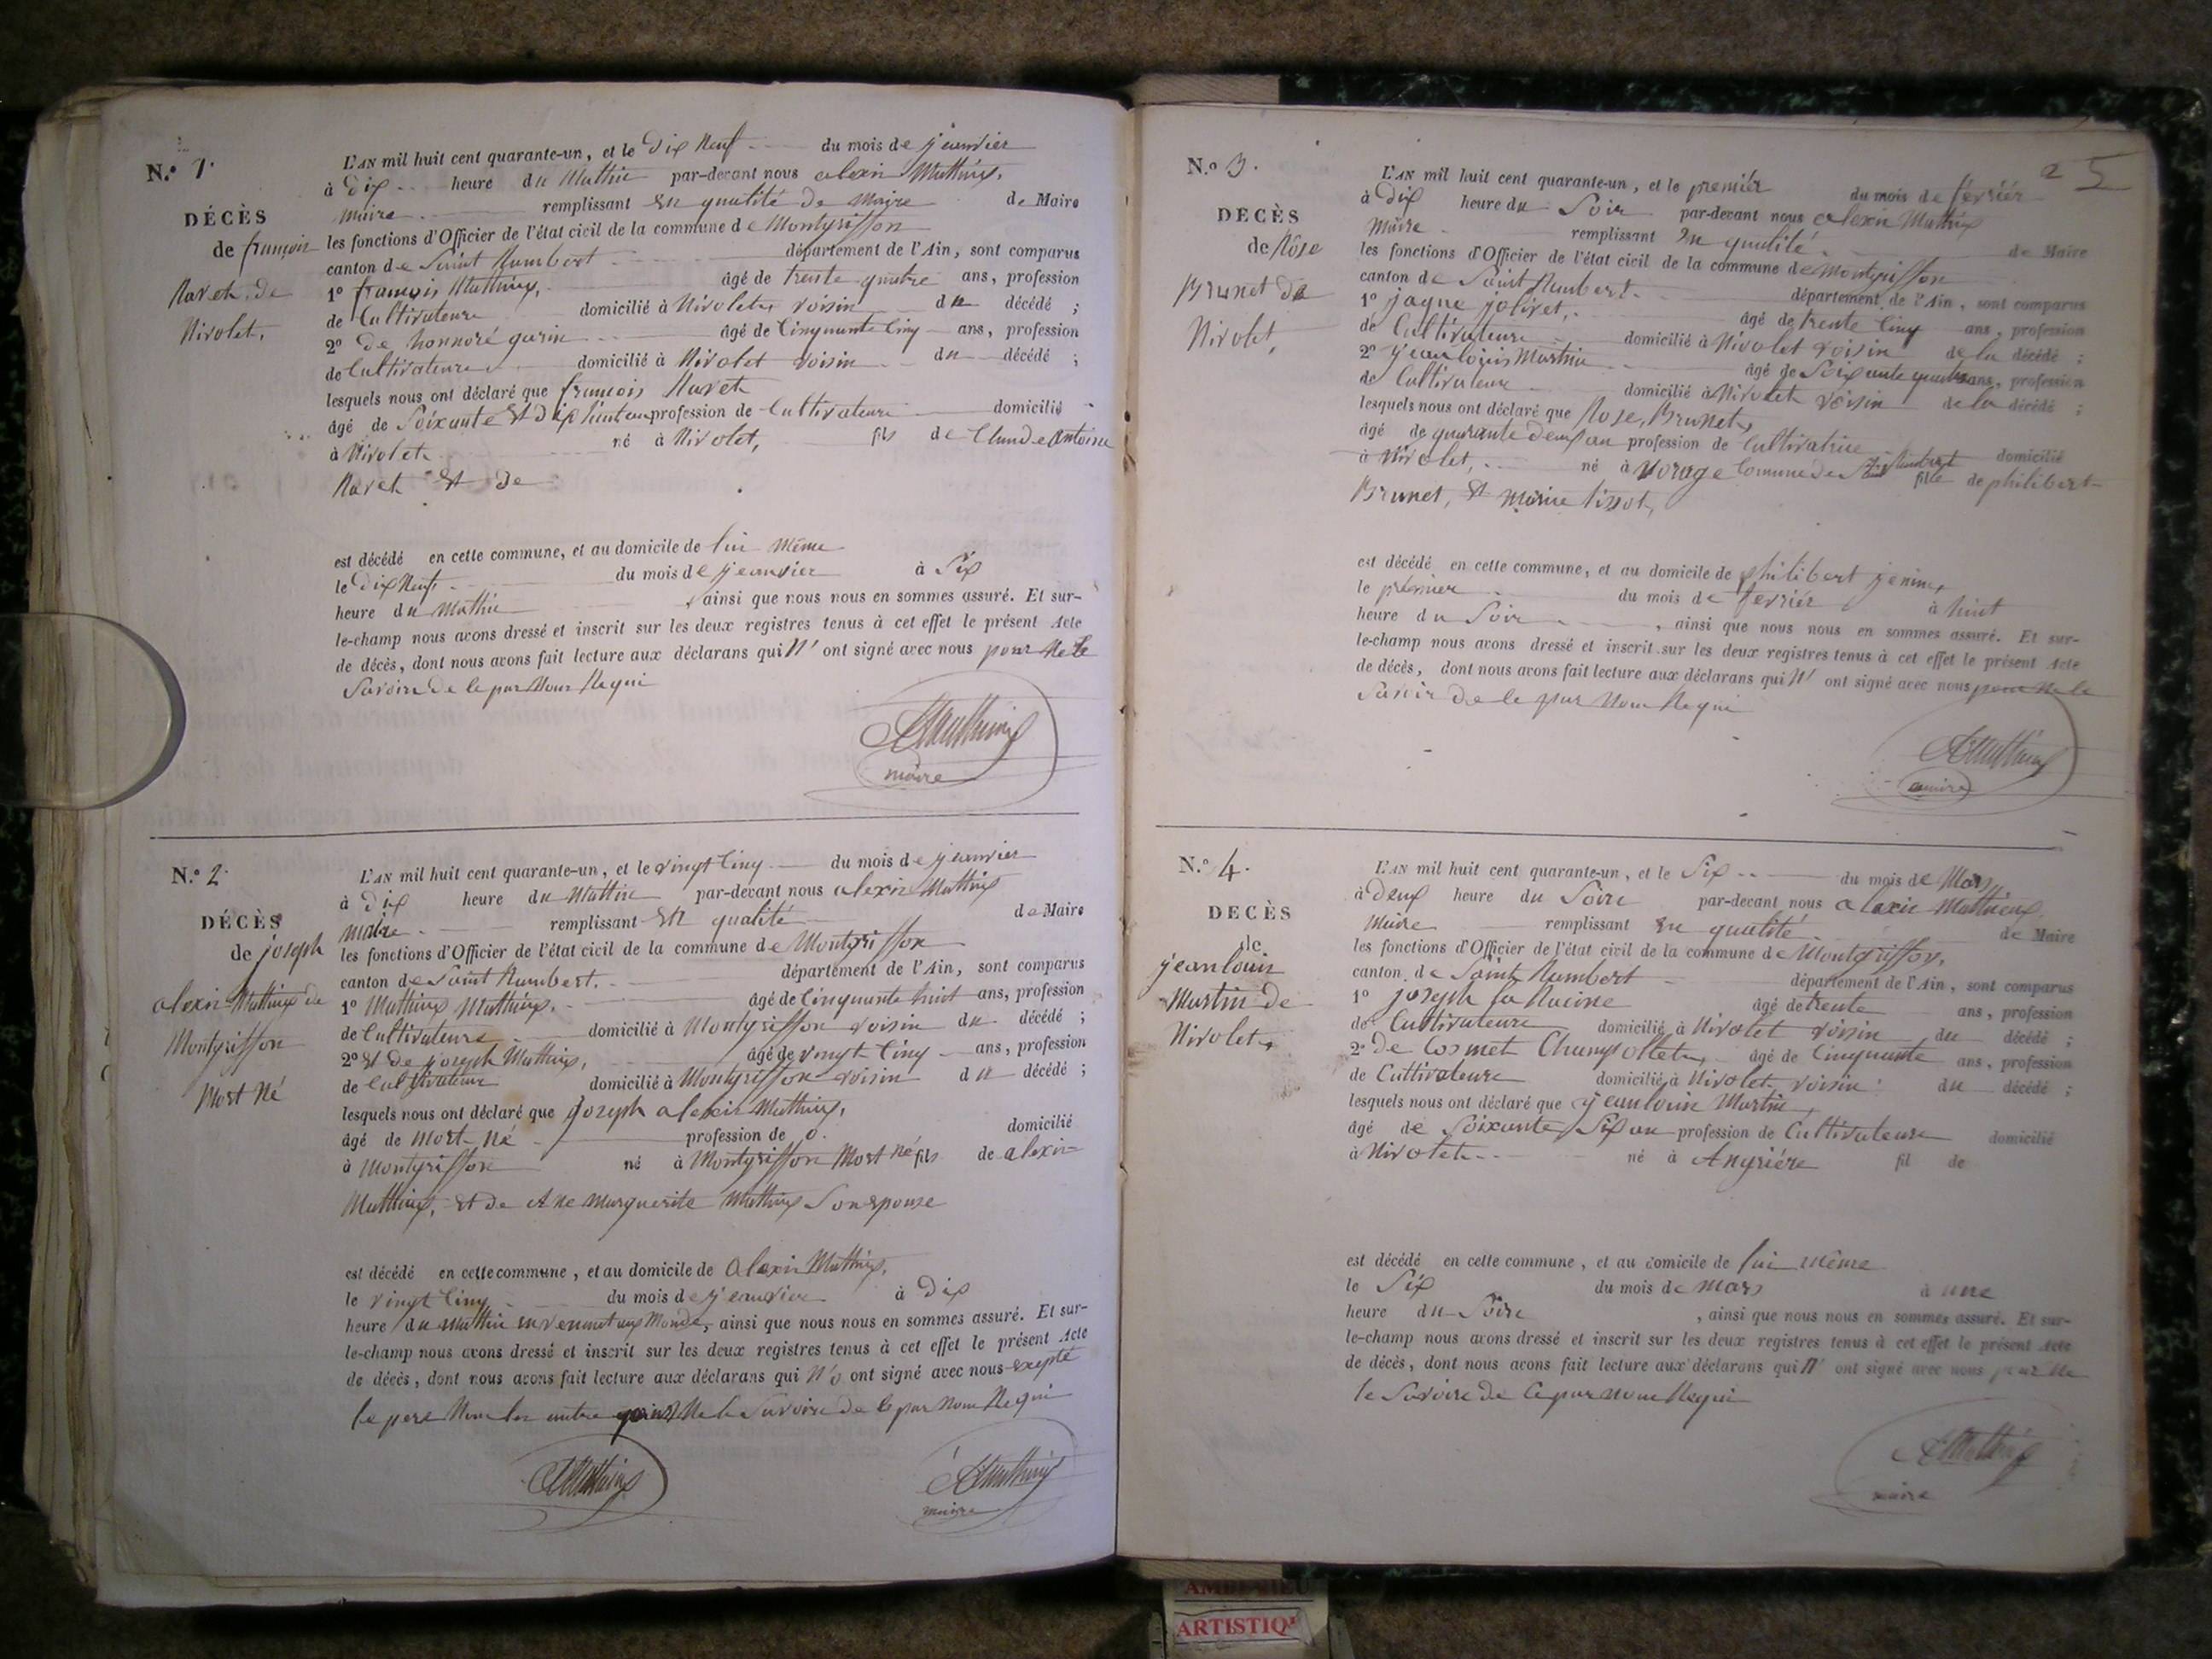 N.º 1.
DÉCÈS
de françois
Navet de
Nivolet,
L'AN mil huit cent quarante-un, et le Dix Neuf du mois de jeanvier
à Dix heure du Mattin par-devant nous alexis Matthieux,
maire remplissant En qualité De Maire de Maire
les fonctions d'Officier de l'état civil de la commune de Montgriffon
canton de Saint Rambert département de l'Ain, sont comparus
1º françois Matthieux, âgé de trente quatre ans, profession
de Cultivateure domicilié à Nivolet, voisin du décédé ;
2º De honnoré garin âgé de Cinquante Cinq ans, profession
de Cultivateure domicilié à Nivolet voisin du décédé ;
lesquels nous ont déclaré que françois Navet
âgé de Soixante Et Dix huit an profession de Cultivateure domicilié
à Nivolet né à Nivolet, fils de Claude Antoine
Navet Et De
est décédé en cette commune, et au domicile de lui Même
le Dix Neuf du mois de jeanvier à Six
heure du Mattin , ainsi que nous nous en sommes assuré. Et sur-
le-champ nous avons dressé et inscrit sur les deux registres tenus à cet effet le présent Acte
de décès, dont nous avons fait lecture aux déclarans qui N' ont signé avec nous pour Ne le
Savoire De le par Nous Requi
maire
N.º 2.
DÉCÈS
de joseph
alexis Matthieux de
Montgriffon
Mort Né
L'AN mil huit cent quarante-un, et le vingt Cinq du mois de jeanvier
à Dix heure du Mattin par-devant nous alexis Matthieux
maire remplissant En qualité de Maire
les fonctions d'Officier de l'état civil de la commune de Montgriffon
canton de Saint Rambert. département de l'Ain, sont comparus
1º Mathieux Matthieux. âgé de Cinquante huit ans, profession
de Cultivateure domicilié à Montgriffon voisin du décédé ;
2º Et De joseph Matthieux, âgé de vingt Cinq ans, profession
de Cultivateur domicilié à Montgriffon voisin du décédé ;
lesquels nous ont déclaré que joseph alexis Matthieux,
âgé de Mort Né profession de 0. domicilié
à Montgriffon né à Montgriffon Mort Né fils de alexis
Matthieux, Et de Ane Marguerite Matthieux Son Epouse
est décédé en cette commune, et au domicile de Alexis Matthieux,
le vingt Cinq du mois de jeanvier à Dix
heure du Mattin en venent aux Monde, ainsi que nous nous en sommes assuré. Et sur-
le-champ nous avons dressé et inscrit sur les deux registres tenus à cet effet le présent Acte
de décès, dont nous avons fait lecture aux déclarans qui N' ont signé avec nous Exepté
le pere Non les autre pour Ne le Savoire De le par Nous Requi
maire
25
N.º 3.
DECÈS
de Rôse
Brunet De
Nivolet,
L'AN mil huit cent quarante-un, et le premiér du mois de févriér
à Dix heure du Soir par-devant nous alexis Matthieux
Maire remplissant En qualité de Maire
les fonctions d'Officier de l'état civil de la commune de Montgriffon
canton de Saint Rambert. département de l'Ain, sont comparus
1º jaque jolivet, âgé de trente Cinq ans, profession
de Cultivateure domicilié à Nivolet voisin de la décédé ;
2º jean louis Martin âgé de Soixante quatre ans, profession
de Cultivateure domicilié à Nivolet voisin de la décédé ;
lesquels nous ont déclaré que Rose, Brunet,
âgé de quarante Deux an profession de Cultivatrice domicilié
à Nivolet, né à vorage Comune de St Rambert fille de philibert
Brunet, Et Marie tissot,
est décédé en cette commune, et au domicile de philibert jenin,
le prémier du mois de fevriér à huit
heure du Soir , ainsi que nous nous en sommes assuré. Et sur-
le-champ nous avons dressé et inscrit sur les deux registres tenus à cet effet le présent Acte
de décès, dont nous avons fait lecture aux déclarans qui N' ont signé avec nous pour Ne le
Savoir De le par Nous Requi
maire
N.º 4.
DECÈS
de
jean louis
Martin De
Nivolet,
L'AN mil huit cent quarante-un, et le Six du mois de Mars,
à Deux heure du Soire par-devant nous alexis Matthieux
Maire remplissant En qualité de Maire
les fonctions d'Officier de l'état civil de la commune de Montgriffon,
canton de Saint Rambert département de l'Ain, sont comparus
1º joseph la Racine âgé de trente ans, profession
de Cultivateure domicilié à Nivolet voisin du décédé ;
2º De Cosmet Champollet, âgé de Cinquante ans, profession
de Cultivateure domicilié à Nivolet voisin du décédé ;
lesquels nous ont déclaré que jean louis Martin
âgé de Soixante Six an profession de Cultivateure domicilié
à Nivolet né à Angriére fil de
est décédé en cette commune, et au domicile de lui même
le Six du mois de mars à une
heure du Soire , ainsi que nous nous en sommes assuré. Et sur-
le-champ nous avons dressé et inscrit sur les deux registres tenus à cet effet le présent Acte
de décès, dont nous avons fait lecture aux déclarans qui N' ont signé avec nous pour Ne
le Savoire De le par nous Requi
maire
AMBERIEU
ARTISTIQ